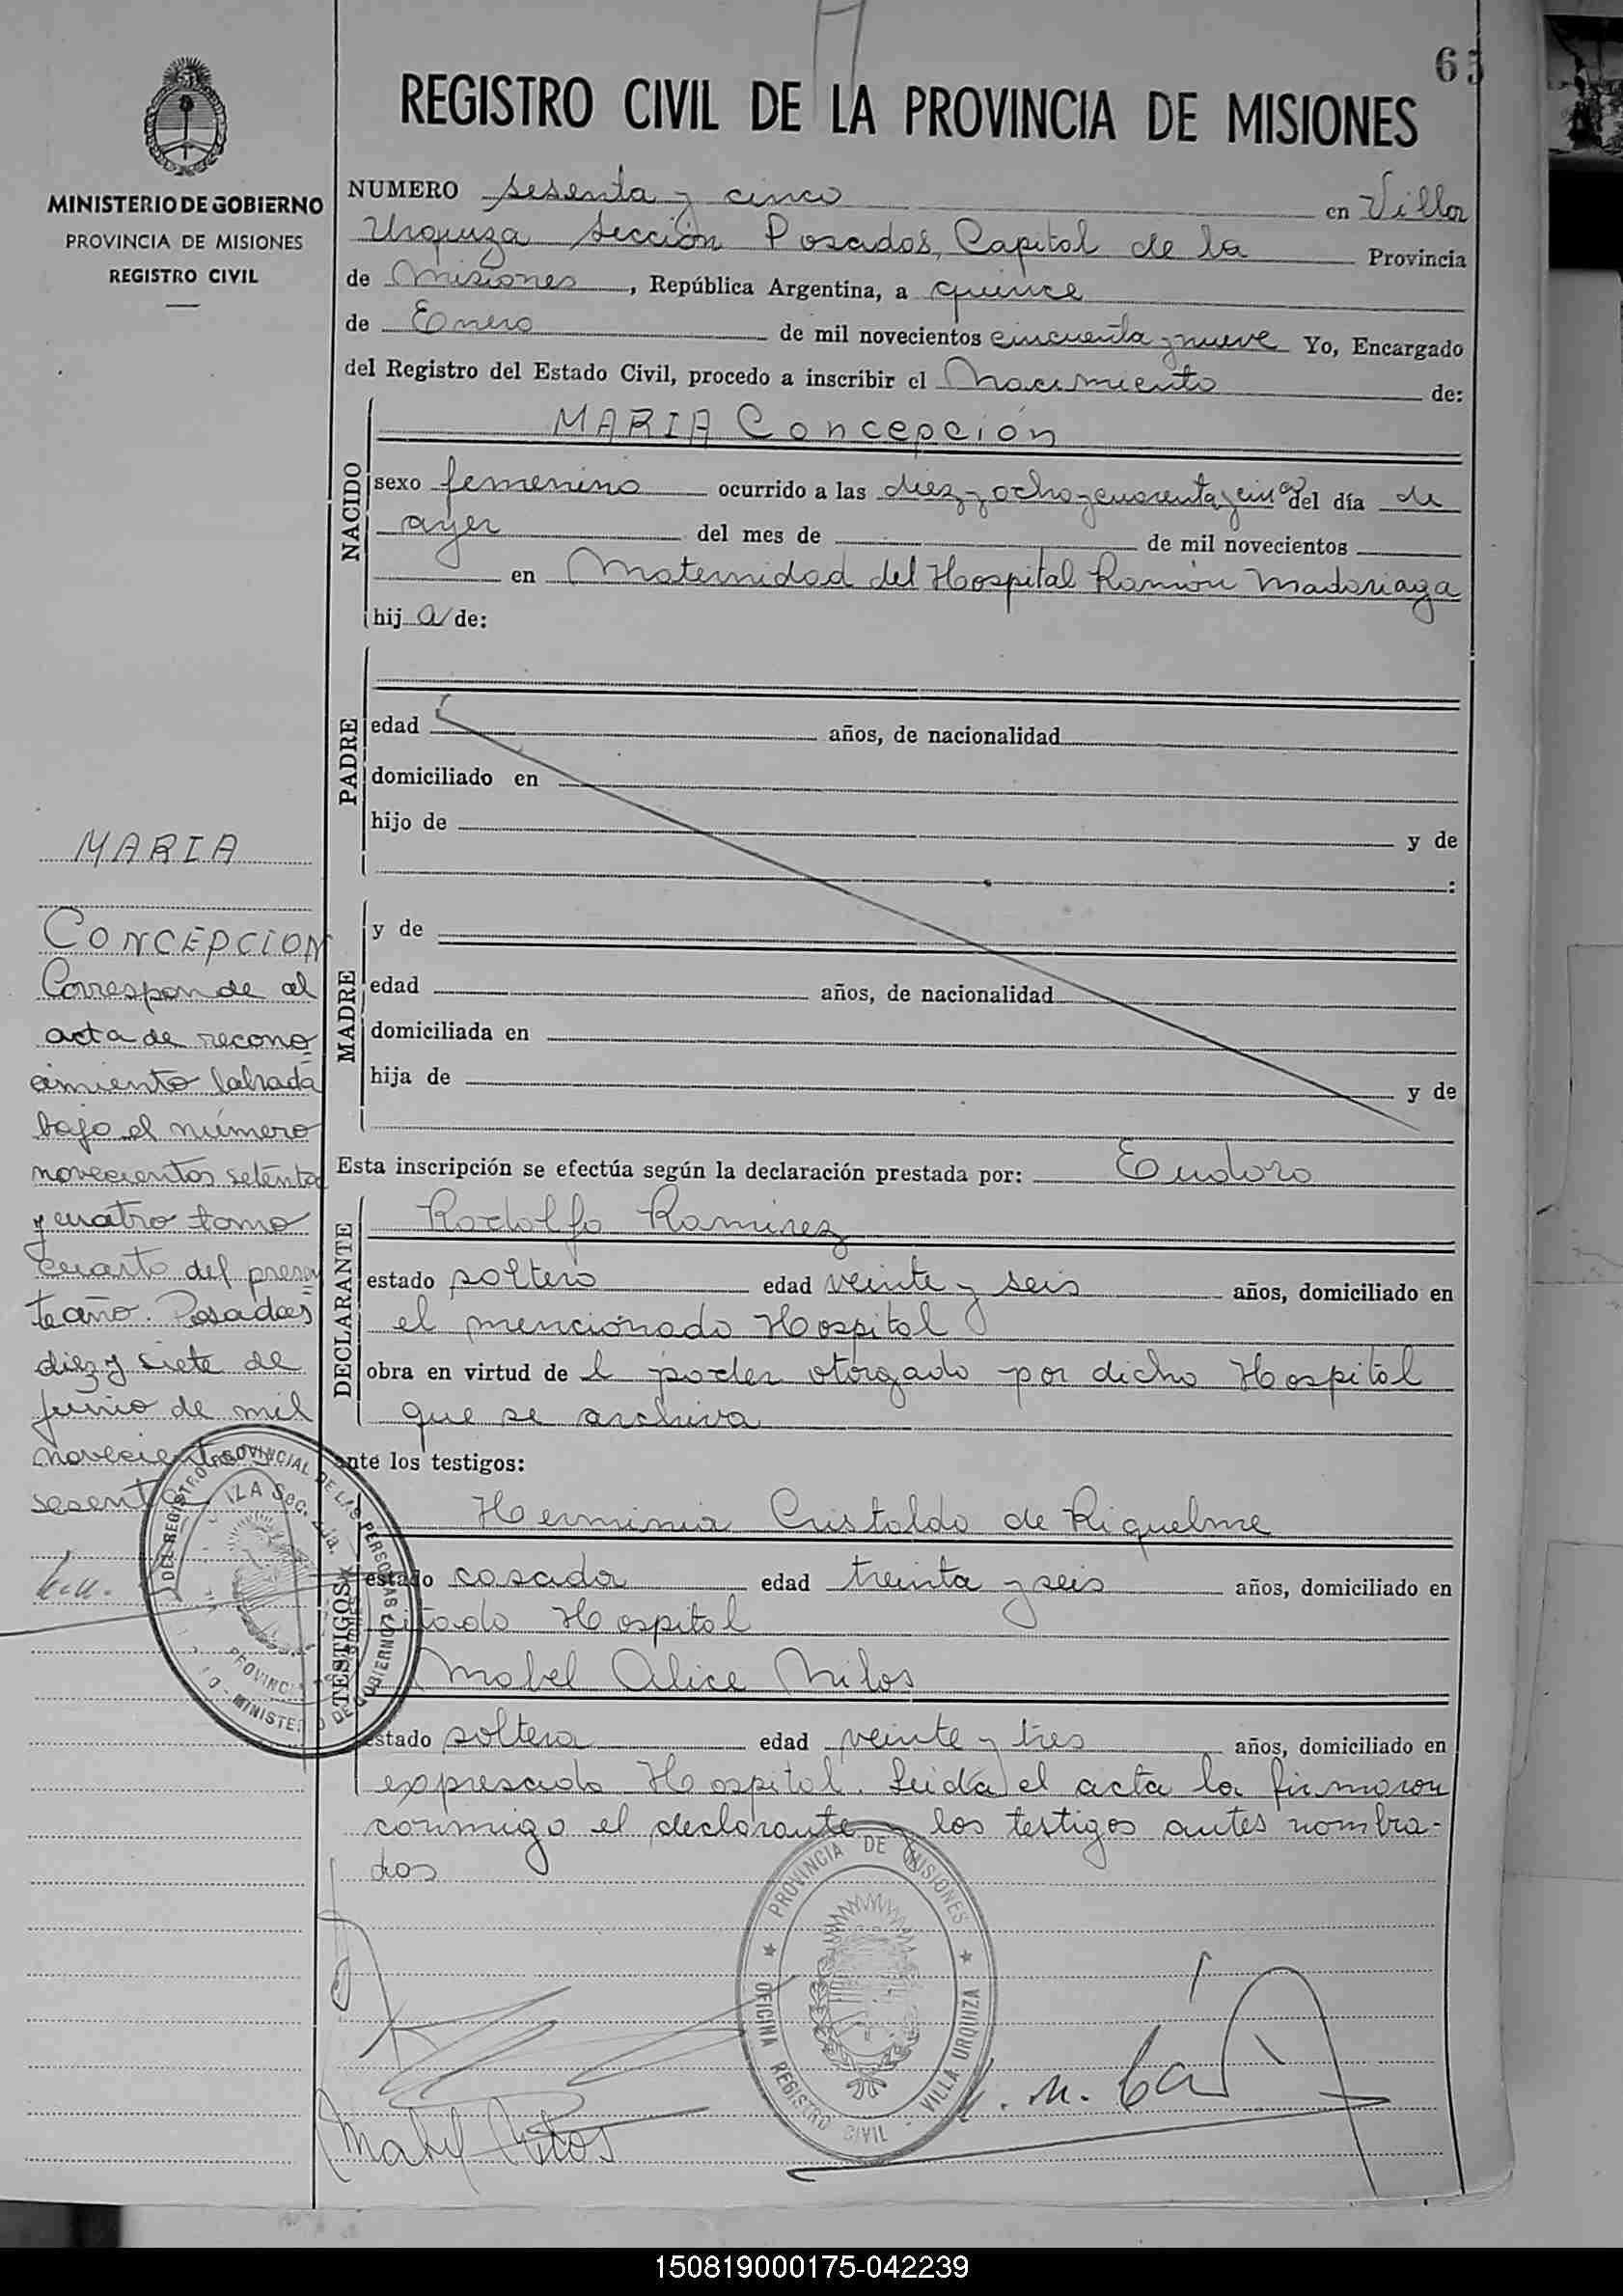 65
REGISTRO CIVIL DE LA PROVINCIA DE MISIONES
MINISTERIO DE GOBIERNO
PROVINCIA DE MISIONES
REGISTRO CIVIL
NUMERO sesenta y cinco en Villa
Urquiza Sección Posadas, Capital de la Provincia
de Misiones, República Argentina, a quince
de Enero de mil novecientos cincuenta y nueve Yo, Encargado
del Registro del Estado Civil, procedo a inscribir el Nacimiento de:
NACIDO
MARIA Concepción
sexo femenino ocurrido a las diez y ocho y cuarenta y cinco del día de
ayer del mes de de mil novecientos
en Maternidad del Hospital Ramón Madariaga
hij a de:
PADRE
edad años, de nacionalidad
domiciliado en
hijo de y de
:
MADRE
y de
edad años, de nacionalidad
domiciliada en
hija de y de
Esta inscripción se efectúa según la declaración prestada por: Eudoro
DECLARANTE
Rodolfo Ramirez
estado soltero edad veinte y seis años, domiciliado en
el mencionado Hospital
obra en virtud de l poder otorgado por dicho Hospital
que se archiva
ante los testigos:
TESTIGOS
Herminia Cristaldo de Riquelme
estado casada edad treinta y seis años, domiciliado en
citado Hospital
Mabel Alice Milos
estado soltera edad veinte y tres años, domiciliado en
expresado Hospital. Leida el acta la firmaron
conmigo el declarante y los testigos antes nombra-
dos
MARIA
CONCEPCION
Corresponde al
acta de recono
cimiento labrada
bajo el número
novecientos setenta
y cuatro tomo
cuarto del presen
te año. Posadas
diez y siete de
junio de mil
novecientos
sesenta
PROVINCIA DE MISIONES
OFICINA REGISTRO CIVIL - VILLA URQUIZA
150819000175-042239